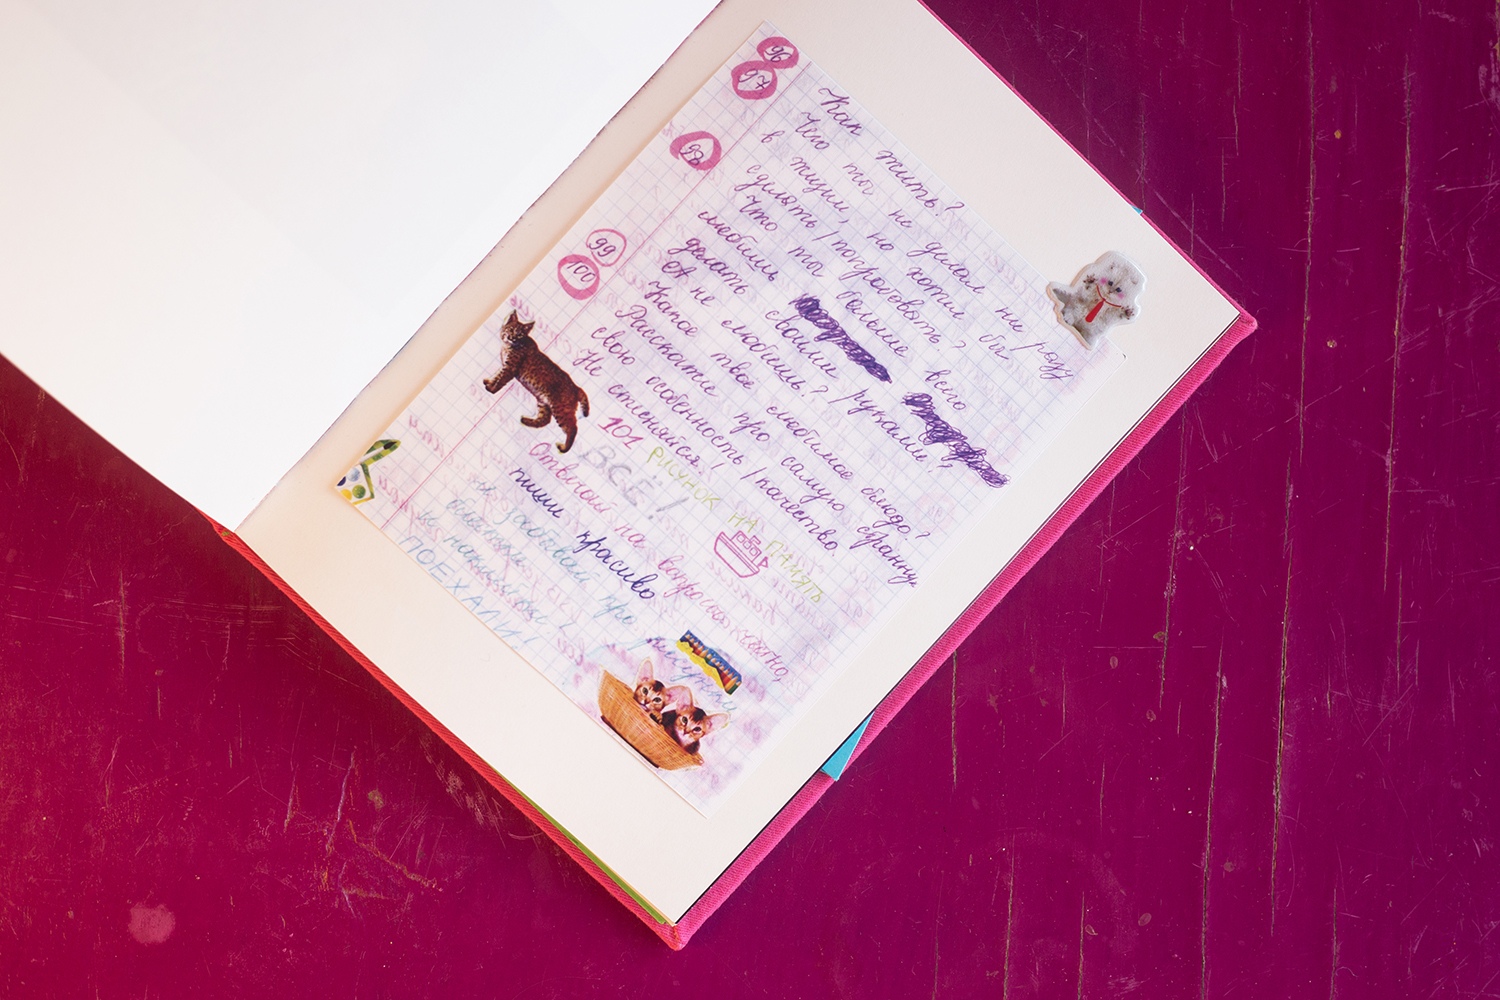 96 Как жить?
97 Что ты не делал ни разу
в жизни, но хотел бы
сделать/попробовать?
98 Что ты больше всего
любишь
делать своими руками?
А не любишь?
99 Какое твоё любимое блюдо?
100 Расскажи про самую странную
свою особенность/качество.
Не стесняйся!
101 РИСУНОК НА ПАМЯТЬ
ВСЁ!
Отвечай на вопросы честно,
пиши красиво
не забывай про рисунки
и наклейки!
ПОЕХАЛИ!